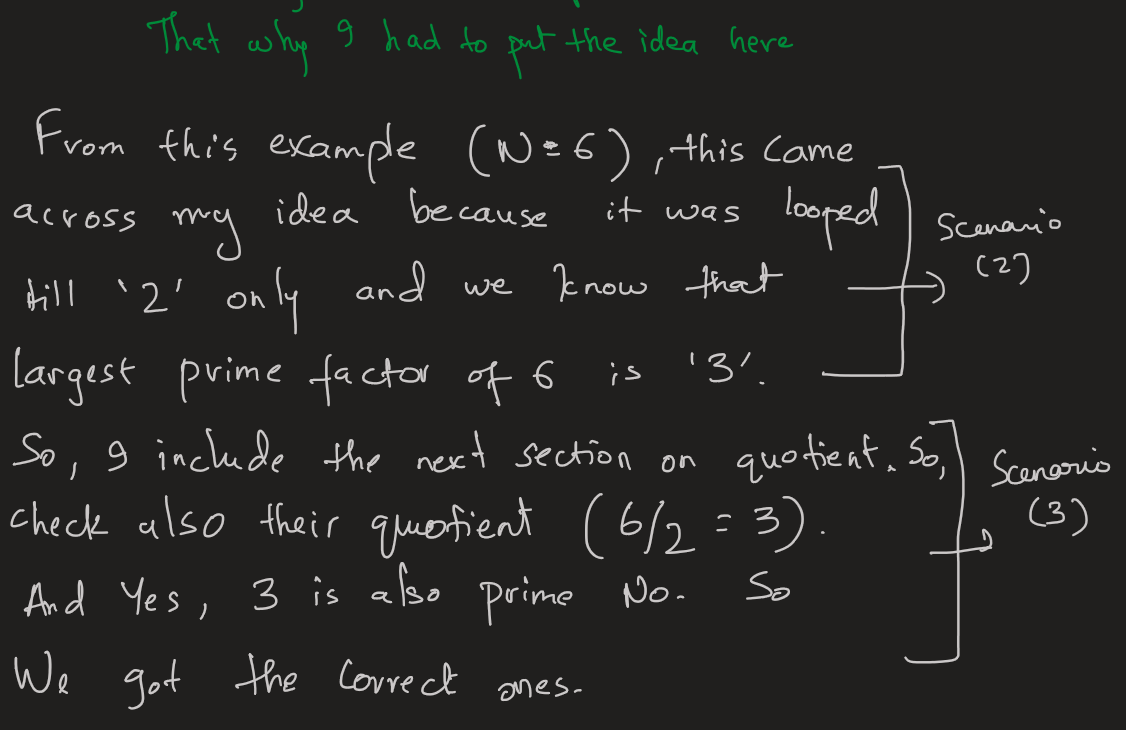 That why I had to put the idea here
From this example (N=6), this came
across my idea because it was looped
till '2' only and we know that
largest prime factor of 6 is '3'.
Scenario
(2)
So, I include the next section on quotient. So,
check also their quotient (6/2 = 3).
And Yes, 3 is also prime No. So
We got the correct ones.
Scenario
(3)